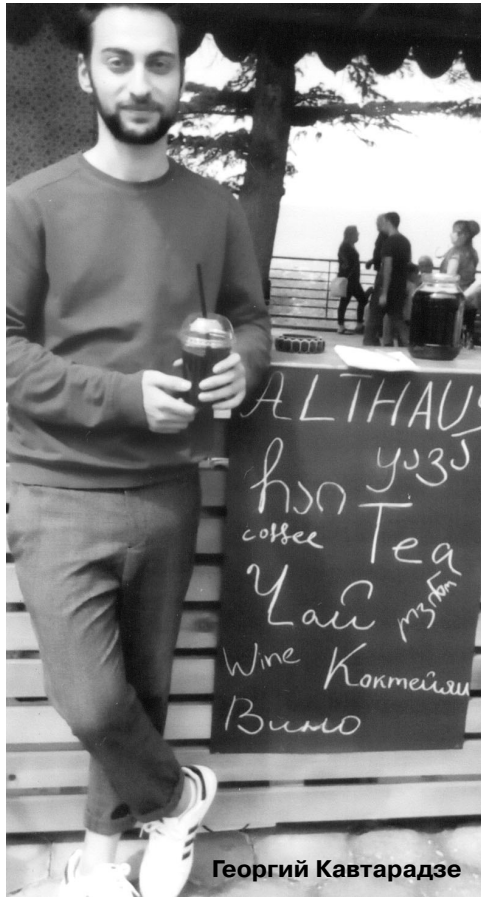 ALTHAUS
ყავა
ჩაი
coffee
Tea
Чай
Wine
Коктейли
Вино
Георгий Кавтарадзе